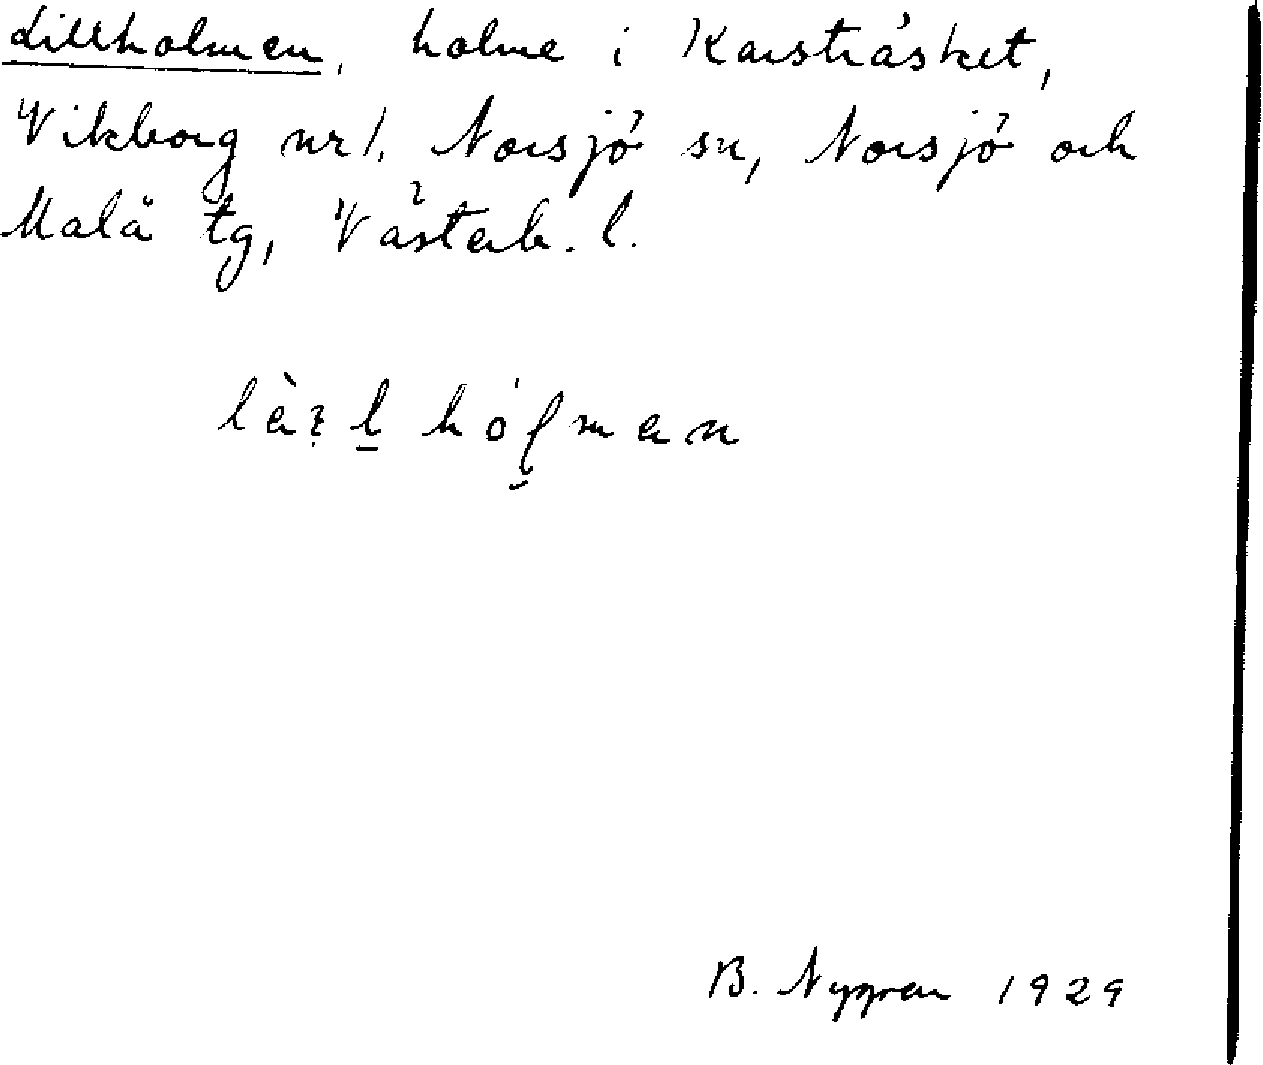 Lillholmen, holme i Karsträsket,
Vikborg nr 1. Norsjö sn, Norsjö och
Malå tg, Västerb. l.
B. Nygren 1929